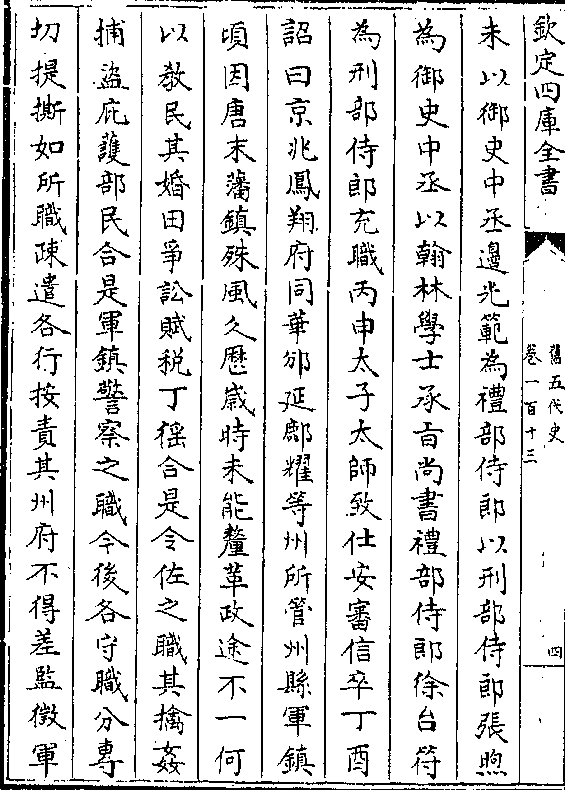 欽定四庫全書
舊五代史
卷一百十三
四
未以御史中丞邊光範為禮部侍郎以刑部侍郎張煦
為御史中丞以翰林學士承㫖尚書禮部侍郎徐台符
為刑部侍郎充職丙申太子太師致仕安審信卒丁酉
詔曰京兆鳳翔府同華邠延鄜耀等州所管州縣軍鎮
頃因唐末藩鎮殊風久歴歲時未能釐革政途不一何
以敎民其婚田爭訟賦税丁徭合是令佐之職其擒姦
捕盜庇護部民合是軍鎮警察之職今後各守職分專
切提撕如所職疎遣各行按責其州府不得差監徵軍